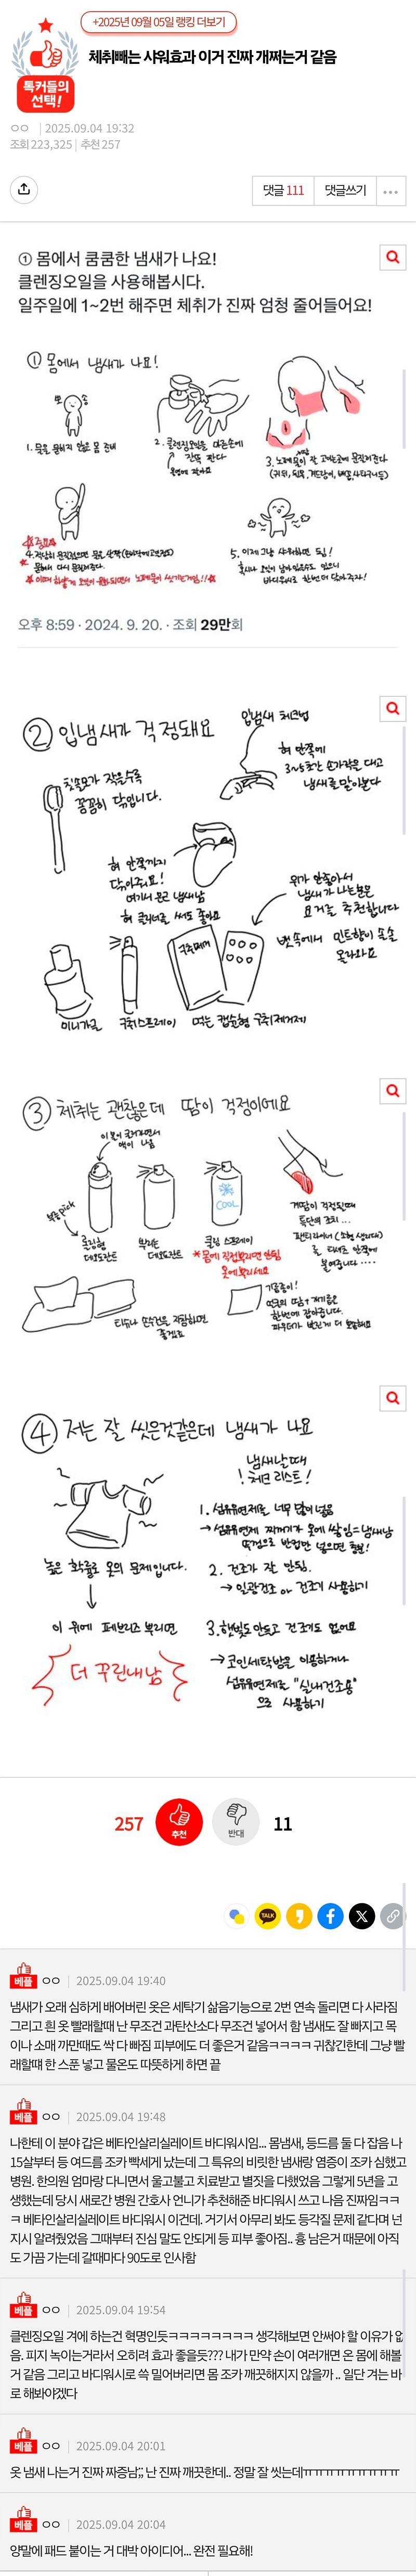 +2025년 09월 05일 랭킹 더보기
톡커들의
선택!
체취빼는 샤워효과 이거 진짜 개쩌는거 같음
ㅇㅇ | 2025.09.04 19:32
조회 223,325 | 추천 257
댓글 111 댓글쓰기
① 몸에서 쿰쿰한 냄새가 나요!
클렌징오일을 사용해봅시다.
일주일에 1~2번 해주면 체취가 진짜 엄청 줄어들어요!
① 몸에서 냄새가 나요!
뽀송
1. 물을 묻히지 않은 몸 준비
2. 클렌징오일을 마른손에
듬뿍 짠다
3. 노폐물이 잘 고이는곳에 문질러준다
(귀뒤, 뒷목, 겨드랑이, 배꼽, 사타구니등)
5. 이제 그냥 샤워하면 됨!
혹시나 오일이 남아있을수도 있으니
바디워시로 한번더 닦아주자!
오후 8:59 · 2024. 9. 20. · 조회 29만회
② 입냄새가 걱정돼요
입냄새 체크법
혀 안쪽에
3~5초간 손가락을 대고
냄새를 맡아본다
칫솔모가 작을수록
꼼꼼히 닦입니다.
혀 안쪽까지
닦아주세요!
여기서 모든 냄새남
혀 클리너를 써도 좋아요
위가 안좋아서
냄새가 나는분은
요거를 추천합니다
뱃속에서 민트향이 솔솔
올라와요
구취제거
미니가글 구취스프레이 먹는 캡슐형 구취제거제
③ 체취는 괜찮은데 땀이 걱정이에요
COOL
롤링형
데오드란트
뿌리는
데오도란트
쿨링 스프레이
*몸에 직접뿌리면 안됨
옷에뿌리세요
겨땀이 걱정될때
특단의 조치...
팬티라이너 (소형 생리대)
를 티셔츠 안쪽에
붙여줍니다....
티슈나 손수건을 지참하면
좋겠죠
기름종이!
④ 저는 잘 씻은것같은데 냄새가 나요
냄새날때
체크 리스트!
높은 확률로 옷의 문제입니다.
↓
이 위에 페브리즈 뿌리면
더 꾸린내남
1. 섬유유연제를 너무 많이넣음
→ 섬유유연제 찌꺼기가 옷에 쌓임=냄새남
뚜껑으로 반컵만 넣으면 충분!
2. 건조가 잘 안됨.
→ 일광건조 or 건조기 사용하기
3. 햇빛도 안들고 건조기도 없어요
→ 코인세탁방을 이용하거나
섬유유연제를 "실내건조용"
으로 사용하기
257 추천 반대 11
TALK
베플 ㅇㅇ | 2025.09.04 19:40
냄새가 오래 심하게 배어버린 옷은 세탁기 삶음기능으로 2번 연속 돌리면 다 사라짐
그리고 흰 옷 빨래할때 난 무조건 과탄산소다 무조건 넣어서 함 냄새도 잘 빠지고 목
이나 소매 까만때도 싹 다 빠짐 피부에도 더 좋은거 같음ㅋㅋㅋㅋ 귀찮긴한데 그냥 빨
래할때 한 스푼 넣고 물온도 따뜻하게 하면 끝
베플 ㅇㅇ | 2025.09.04 19:48
나한테 이 분야 갑은 베타인살리실레이트 바디워시임... 몸냄새, 등드름 둘 다 잡음 나
15살부터 등 여드름 조카 빡세게 났는데 그 특유의 비릿한 냄새랑 염증이 조카 심했고
병원. 한의원 엄마랑 다니면서 울고불고 치료받고 별짓을 다했었음 그렇게 5년을 고
생했는데 당시 새로간 병원 간호사 언니가 추천해준 바디워시 쓰고 나음 진짜임ㅋㅋ
ㅋ 베타인살리실레이트 바디워시 이건데. 거기서 아무리 봐도 등각질 문제 같다며 넌
지시 알려줬었음 그때부터 진심 말도 안되게 등 피부 좋아짐.. 흉 남은거 때문에 아직
도 가끔 가는데 갈때마다 90도로 인사함
베플 ㅇㅇ | 2025.09.04 19:54
클렌징오일 겨에 하는건 혁명인듯ㅋㅋㅋㅋㅋㅋㅋㅋ 생각해보면 안써야 할 이유가 없
음. 피지 녹이는거라서 오히려 효과 좋을듯??? 내가 만약 손이 여러개면 온 몸에 해볼
거 같음 그리고 바디워시로 쓱 밀어버리면 몸 조카 깨끗해지지 않을까 .. 일단 겨는 바
로 해봐야겠다
베플 ㅇㅇ | 2025.09.04 20:01
옷 냄새 나는거 진짜 짜증남;; 난 진짜 깨끗한데.. 정말 잘 씻는데ㅠㅠㅠㅠㅠㅠㅠㅠㅠ
베플 ㅇㅇ | 2025.09.04 20:04
양말에 패드 붙이는 거 대박 아이디어... 완전 필요해!